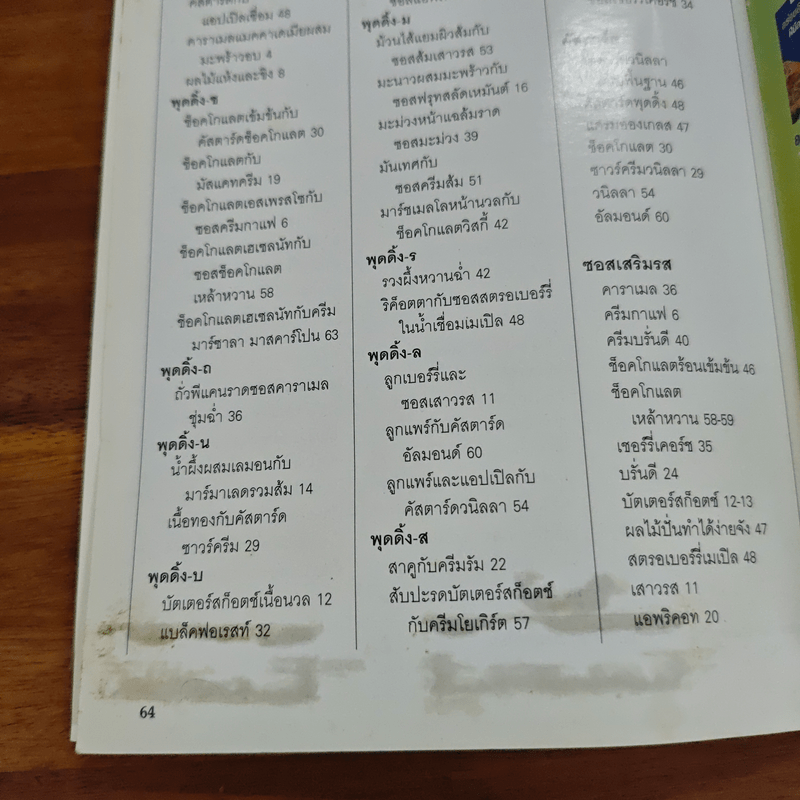 แอปเปิลเชื่อม 48
คาราเมลแมคคาเดเมียผสม
มะพร้าวอบ 4
ผลไม้แห้งและขิง 8
พุดดิ้ง-ช
ช็อคโกแลตเข้มข้นกับ
คัสตาร์ดช็อคโกแลต 30
ช็อคโกแลตกับ
มัสแคทครีม 19
ช็อคโกแลตเอสเพรสโซกับ
ซอสครีมกาแฟ 6
ช็อคโกแลตเฮเซลนัทกับ
ซอสช็อคโกแลต
เหล้าหวาน 58
ช็อคโกแลตเฮเซลนัทกับครีม
มาร์ซาลา มาสคาร์โปน 63
พุดดิ้ง-ถ
ถั่วพีแคนราดซอสคาราเมล
ชุ่มฉ่ำ 36
พุดดิ้ง-น
น้ำผึ้งผสมเลมอนกับ
มาร์มาเลดรวมส้ม 14
เนื้อทองกับคัสตาร์ด
ซาวร์ครีม 29
พุดดิ้ง-บ
บัตเตอร์สก็อตช์เนื้อนวล 12
แบล็คฟอเรสท์ 32
64
พุดดิ้ง-ม
ม้วนไส้แยมผิวส้มกับ
ซอสส้มเสาวรส 53
มะนาวผสมมะพร้าวกับ
ซอสฟรุทสลัดเหมันต์ 16
มะม่วงหน้าแฉล้มราด
ซอสมะม่วง 39
มันเทศกับ
ซอสครีมส้ม 51
มาร์ชเมลโลหน้านวลกับ
ช็อคโกแลตวิสกี้ 42
พุดดิ้ง-ร
รวงผึ้งหวานฉ่ำ 42
ริค็อตตากับซอสสตรอเบอร์รี่
ในน้ำเชื่อมเมเปิล 48
พุดดิ้ง-ล
ลูกเบอร์รี่และ
ซอสเสาวรส 11
ลูกแพร์กับคัสตาร์ด
อัลมอนด์ 60
ลูกแพร์และแอปเปิลกับ
คัสตาร์ดวนิลลา 54
พุดดิ้ง-ส
สาคูกับครีมรัม 22
สับปะรดบัตเตอร์สก็อตช์
กับครีมโยเกิร์ต 57
34
46
48
47
ช็อคโกแลต 30
ซาวร์ครีมวนิลลา 29
วนิลลา 54
อัลมอนด์ 60
ซอสเสริมรส
คาราเมล 36
ครีมกาแฟ 6
ครีมบรั่นดี 40
ช็อคโกแลตร้อนเข้มข้น 46
ช็อคโกแลต
เหล้าหวาน 58-59
เชอร์รี่เคอร์ช 35
บรั่นดี 24
บัตเตอร์สก็อตช์ 12-13
ผลไม้ปั่นทำได้ง่ายจัง 47
สตรอเบอร์รี่เมเปิล 48
เสาวรส 11
แอพริคอท 20